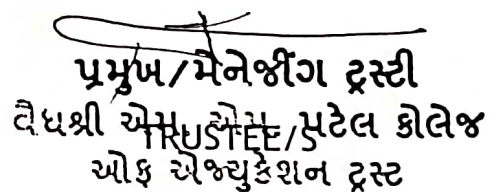 પ્રમુખ/મેનેજીંગ ટ્રસ્ટી
વૈધશ્રી એમ એમ પટેલ કોલેજ
TRUSTEE/S
ઓફ એજ્યુકેશન ટ્રસ્ટ